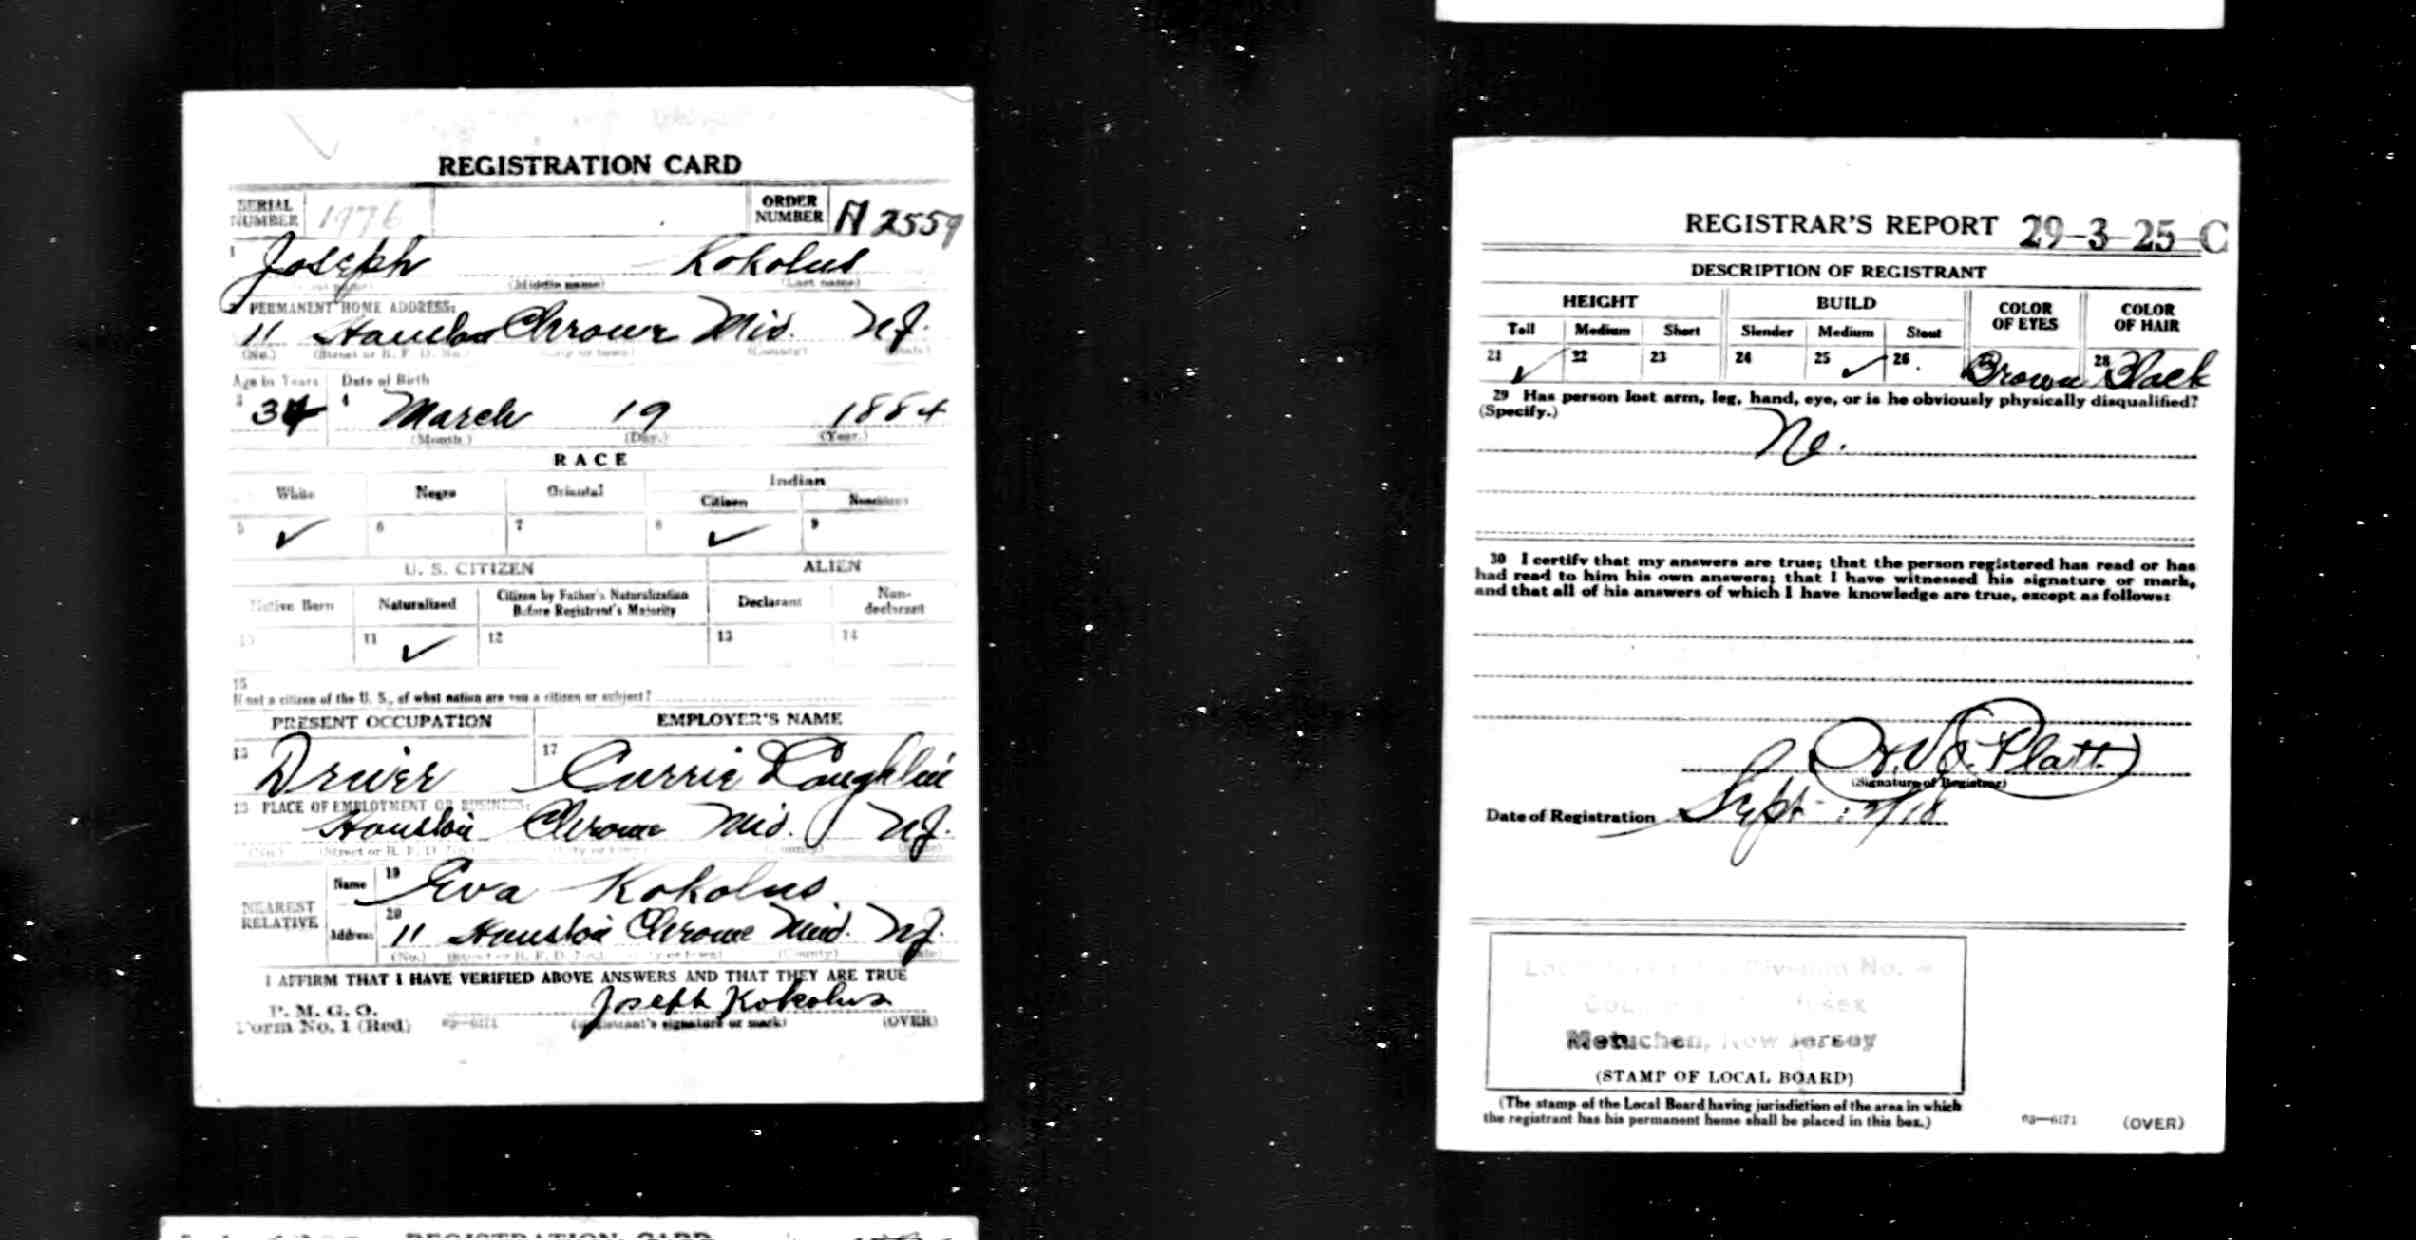 REGISTRATION CARD
SERIAL NUMBER 1976 ORDER NUMBER A 2559
1 Joseph Kokolus
(First name) (Middle name) (Last name)
2 PERMANENT HOME ADDRESS:
11 Houston Chrome Mid. N.J.
(No.) (Street or R. F. D. No.) (City or town) (County) (State)
Age in Years Date of Birth
3 34 4 March 19 1884
(Month.) (Day.) (Year.)
RACE
White Negro Oriental Indian
Citizen Noncitizen
5 ✓ 6 7 8 ✓ 9
U. S. CITIZEN ALIEN
Native Born Naturalized Citizen by Father's Naturalization Before Registrant's Majority Declarant Non-declarant
10 11 ✓ 12 13 14
15
If not a citizen of the U. S., of what nation are you a citizen or subject?
PRESENT OCCUPATION EMPLOYER'S NAME
16 Driver 17 Currie Loughlin
18 PLACE OF EMPLOYMENT OR BUSINESS:
Houston Chrome Mid. N.J.
(No.) (Street or R. F. D. No.) (City or town) (County) (State)
NEAREST RELATIVE Name 19 Eva Kokolus
Address 20 11 Houston Chrome Mid. N.J.
(No.) (Street or R. F. D. No.) (City or town) (County) (State)
I AFFIRM THAT I HAVE VERIFIED ABOVE ANSWERS AND THAT THEY ARE TRUE
P. M. G. O.
Form No. 1 (Red) 03—6171 Joseph Kokolus
(Registrant's signature or mark) (OVER)
REGISTRAR'S REPORT 29-3-25-C
DESCRIPTION OF REGISTRANT
HEIGHT BUILD COLOR OF EYES COLOR OF HAIR
Tall Medium Short Slender Medium Stout
21 ✓ 22 23 24 25 ✓ 26 Brown 28 Black
29 Has person lost arm, leg, hand, eye, or is he obviously physically disqualified?
(Specify.)
No.
30 I certify that my answers are true; that the person registered has read or has
had read to him his own answers; that I have witnessed his signature or mark,
and that all of his answers of which I have knowledge are true, except as follows:
Platt
(Signature of Registrar)
Date of Registration Sept
Division No.
Metuchen, New Jersey
(STAMP OF LOCAL BOARD)
(The stamp of the Local Board having jurisdiction of the area in which
the registrant has his permanent home shall be placed in this box.)
03—6171 (OVER)
REGISTRATION CARD